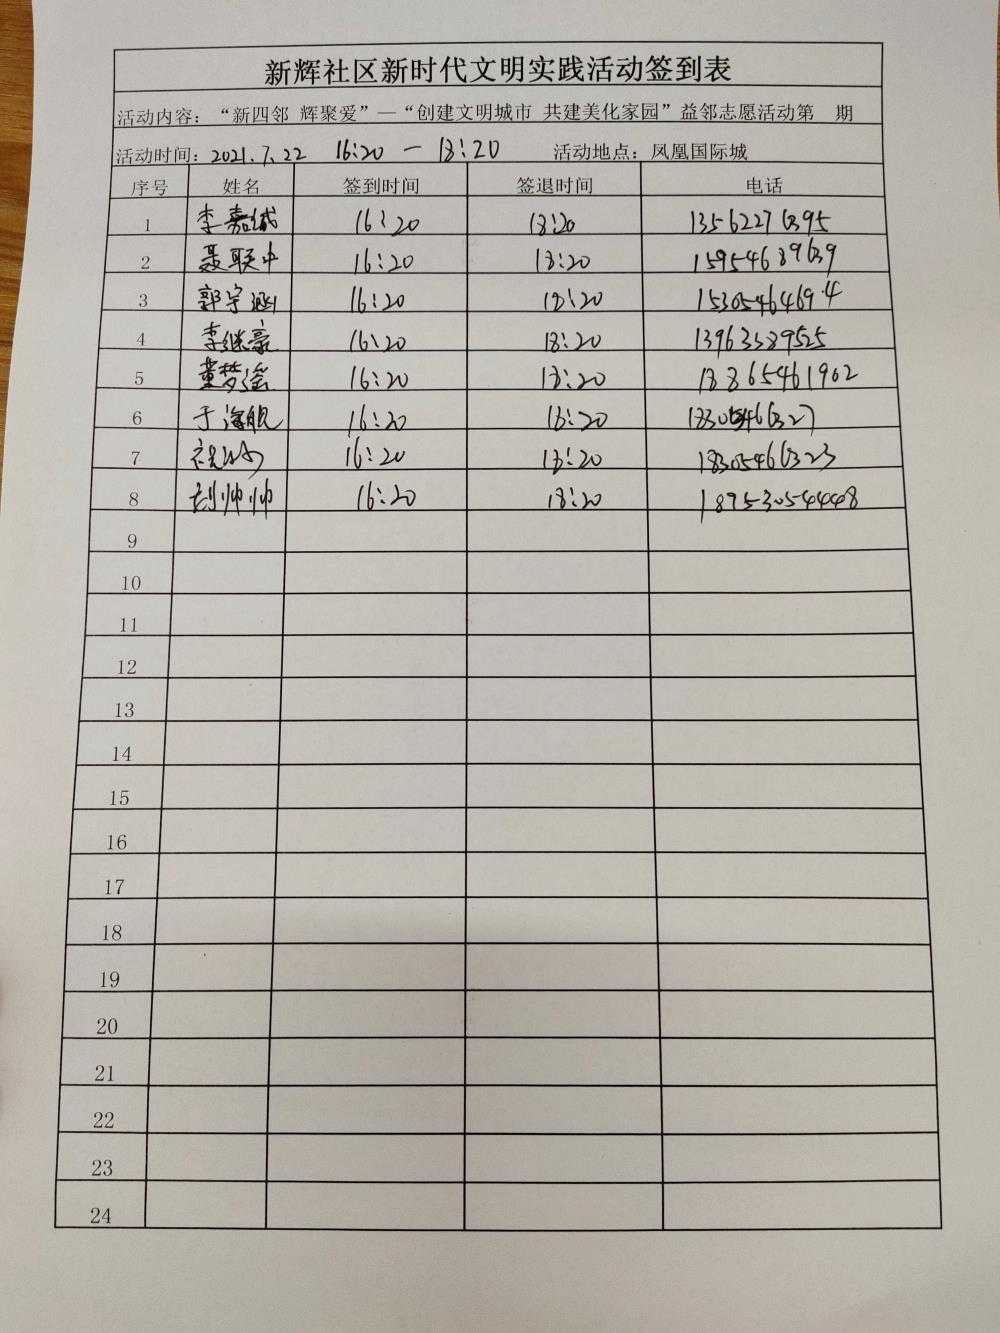 新辉社区新时代文明实践活动签到表
活动内容：“新四邻 辉聚爱”—“创建文明城市 共建美化家园”益邻志愿活动第 期
活动时间：2021.7.22 16:20 — 18:20 活动地点：凤凰国际城
序号 姓名 签到时间 签退时间 电话
1 李嘉诚 16:20 18:20 13562276395
2 聂联中 16:20 18:20 15954689639
3 郭宇涵 16:20 18:20 1530546469.4
4 李继豪 16:20 18:20 13963389525
5 董梦瑶 16:20 18:20 18865461902
6 于海舰 16:20 18:20
7 16:20 18:20 18305466323
8 刘帅帅 16:20 18:20 189530544448
9
10
11
12
13
14
15
16
17
18
19
20
21
22
23
24